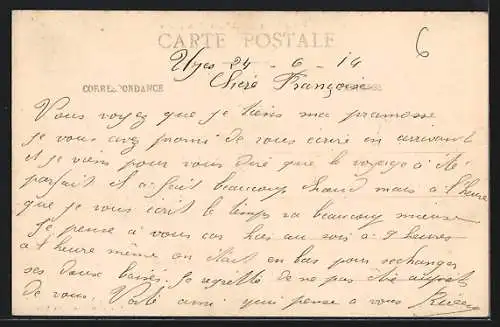 CARTE POSTALE
6
Uyes 24 - 6 - 14
CORRESPONDANCE
Chere Françoise
Vous voyez que je tiens ma pramesse
je vous avez promi de vous ecrire en arrivant
et je viens pour vous diré que le voyage à été
parfait il a fait beaucoup chaud mais à l'heure
que je vous écrit le temps va beaucoup mieuse
Je pense a vous car hier au soir à 9 heures
a l'heure même on était en bas pour échanger
ses doux baisés. Je regrette de ne pas être auprès
de vous. Votre amie qui pense a vous